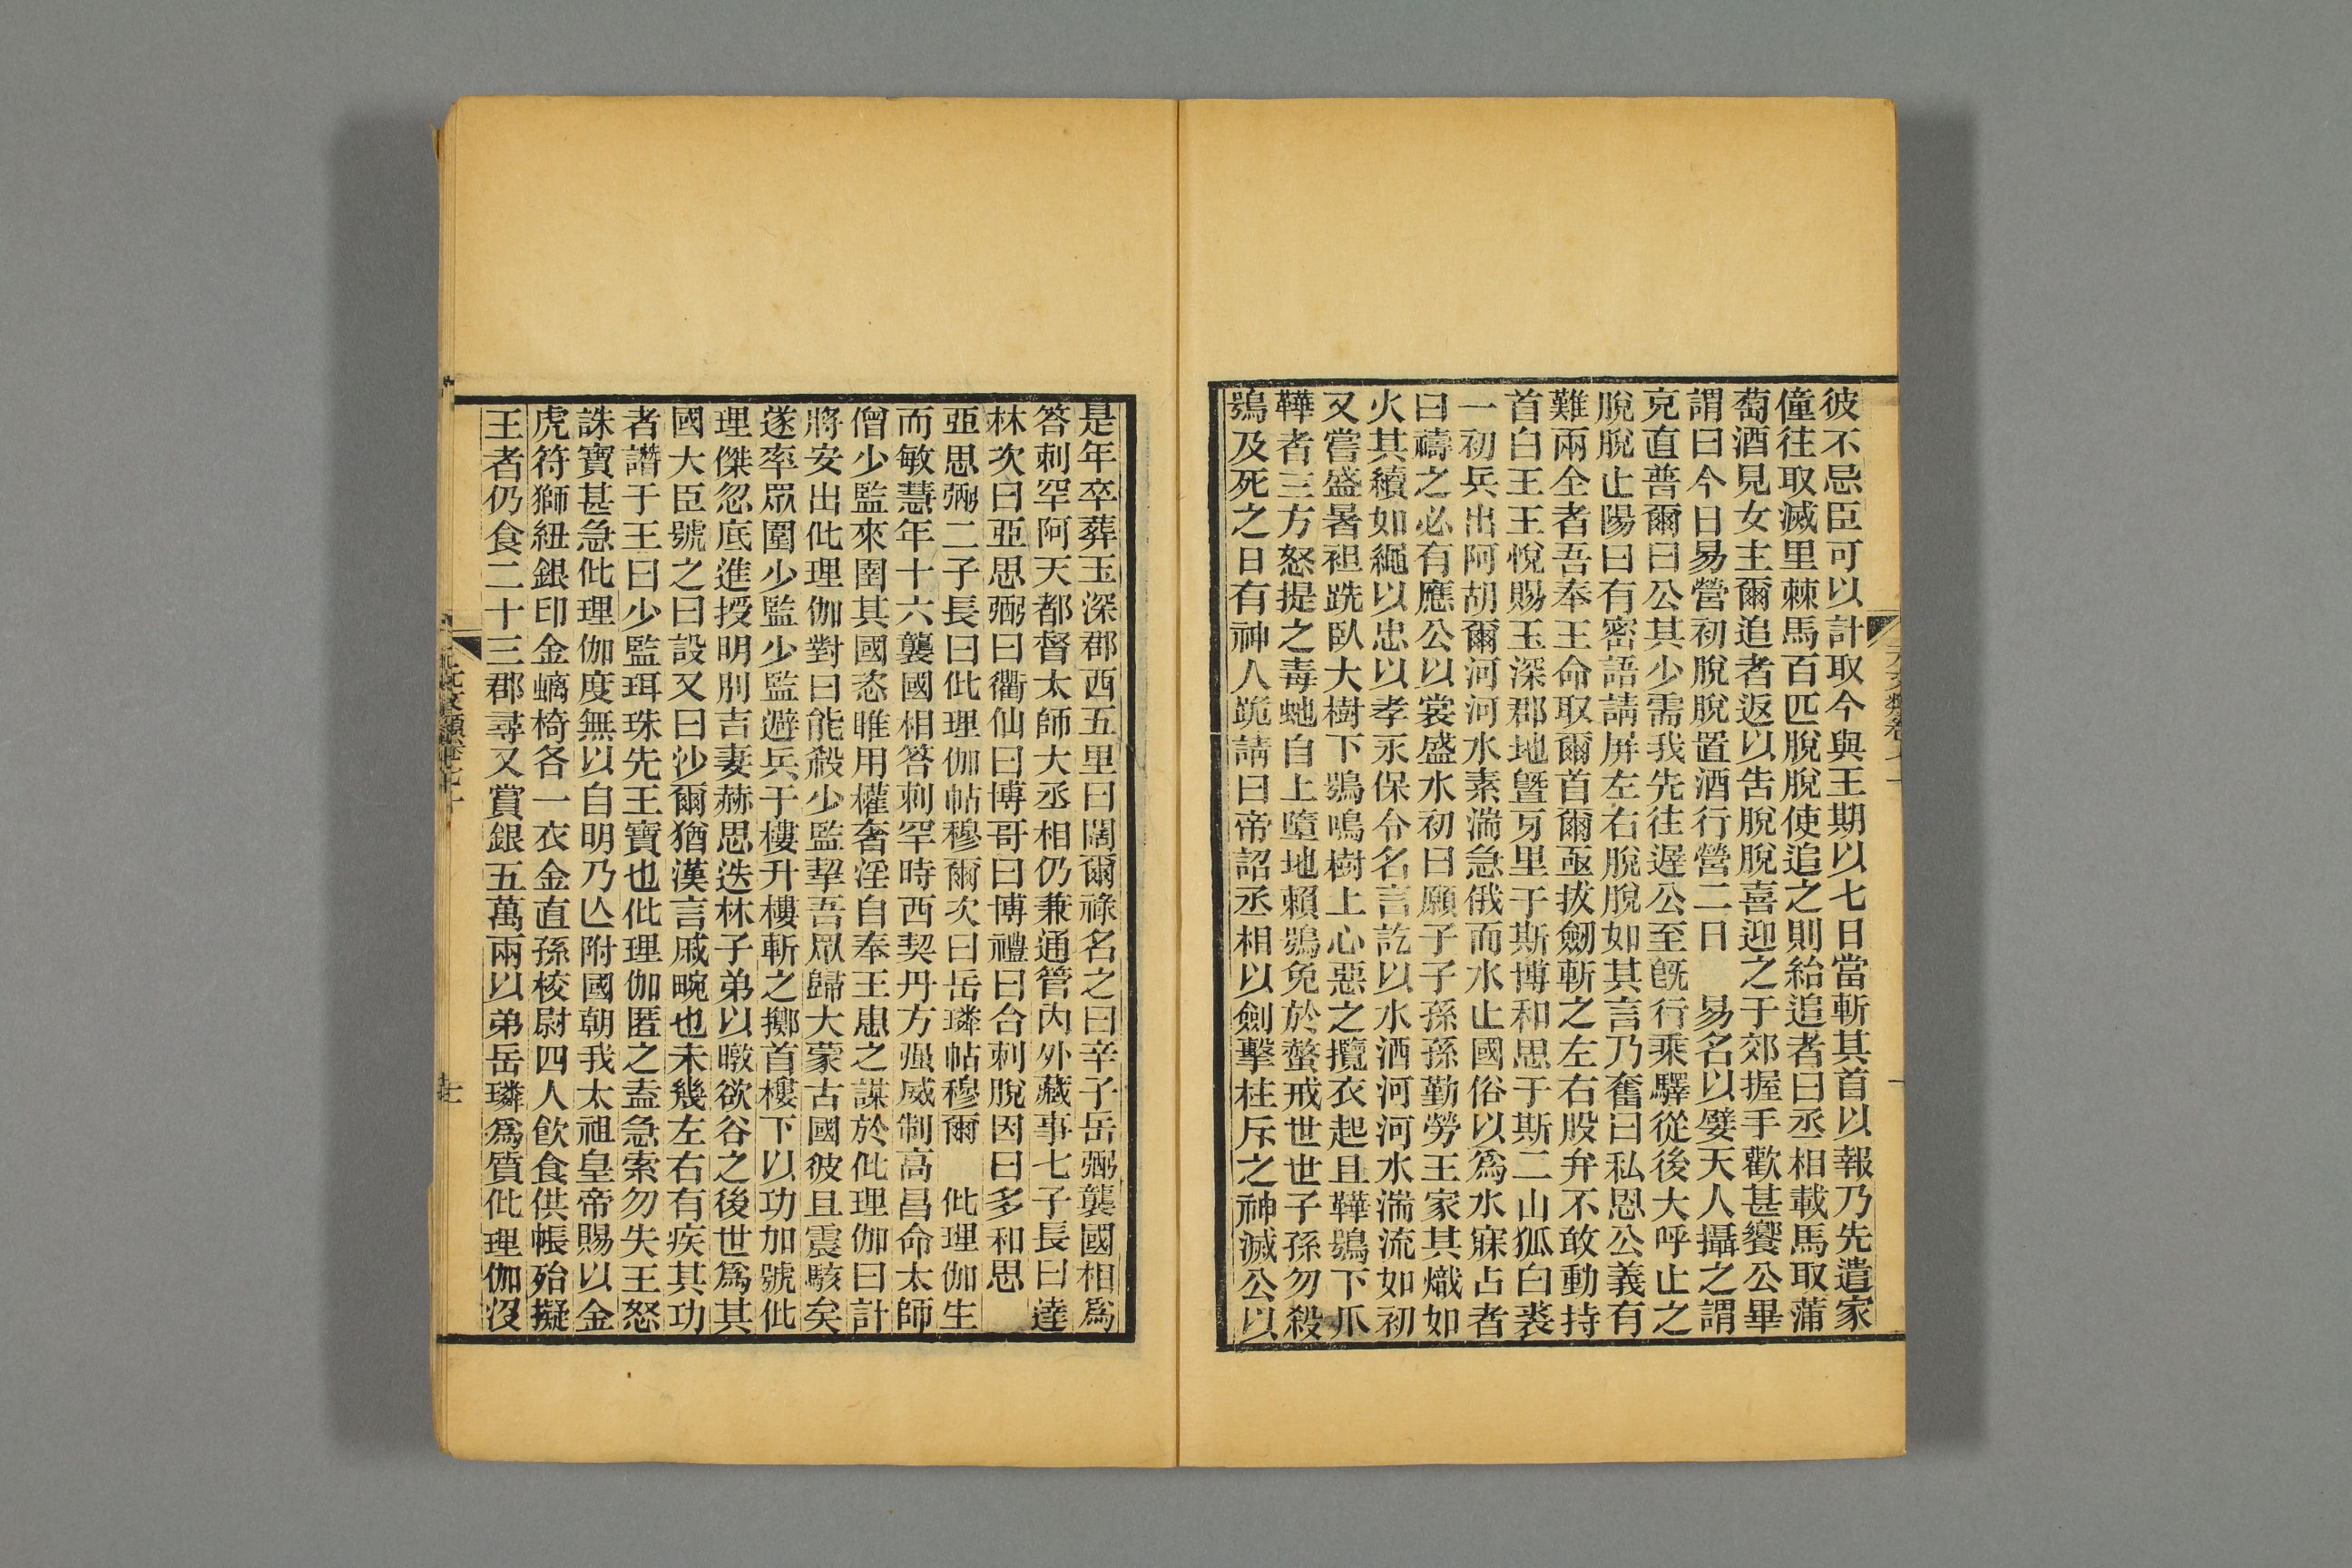 彼不忌臣可以計取今與王期以七日當斬其首以報乃先遣家
僮往取滅里棘馬百匹脫脫使追之則紿追者曰丞相載馬取蒲
萄酒見女主爾追者返以告脫脫喜迎之于郊握手歡甚饗公畢
謂曰今日易營初脫脫置酒行營二日　易名以嬖天人攝之謂
克直普爾曰公其少需我先往遲公至旣行乘驛從後大呼止之
脫脫止陽曰有密語請屏左右脫脫如其言乃奮曰私恩公義有
難兩全者吾奉王命取爾首爾亟拔劒斬之左右股弁不敢動持
首白王王悅賜玉深郡地曁歹里于斯博和思于斯二山狐白裘
一初兵出阿胡爾河河水素湍急俄而水止國俗以爲水寐占者
曰禱之必有應公以裳盛水初曰願子子孫孫勤勞王家其熾如
火其續如繩以忠以孝永保令名言訖以水洒河河水湍流如初
又嘗盛暑袒跣臥大樹下鴞鳴樹上心惡之攬衣起且鞾鴞下爪
鞾者三方怒提之毒虵自上墮地賴鴞免於螫戒世世子孫勿殺
鴞及死之日有神人跪請曰帝詔丞相以劍擊柱斥之神滅公以
是年卒葬玉深郡西五里曰闊爾祿名之曰辛子岳弼襲國相爲
答刺罕阿天都督太師大丞相仍兼通管內外藏事七子長曰達
林次曰亞思弼曰衢仙曰博哥曰博禮曰合刺脫因曰多和思
亞思弼二子長曰仳理伽帖穆爾次曰岳璘帖穆爾　仳理伽生
而敏慧年十六襲國相答刺罕時西契丹方强威制高昌命太師
僧少監來圍其國恣睢用權奢淫自奉王患之謀於仳理伽曰計
將安出仳理伽對曰能殺少監挈吾眾歸大蒙古國彼且震駭矣
遂率眾圍少監少監避兵于樓升樓斬之擲首樓下以功加號仳
理傑忽底進授明別吉妻赫思迭林子弟以暾欲谷之後世爲其
國大臣號之曰設又曰沙爾猶漢言戚畹也未幾左右有疾其功
者譖于王曰少監珥珠先王寶也仳理伽匿之盍急索勿失王怒
誅寶甚急仳理伽度無以自明乃亾附國朝我太祖皇帝賜以金
虎符獅紐銀印金螭椅各一衣金直孫校尉四人飲食供帳殆擬
王者仍食二十三郡尋又賞銀五萬兩以弟岳璘爲質仳理伽沒